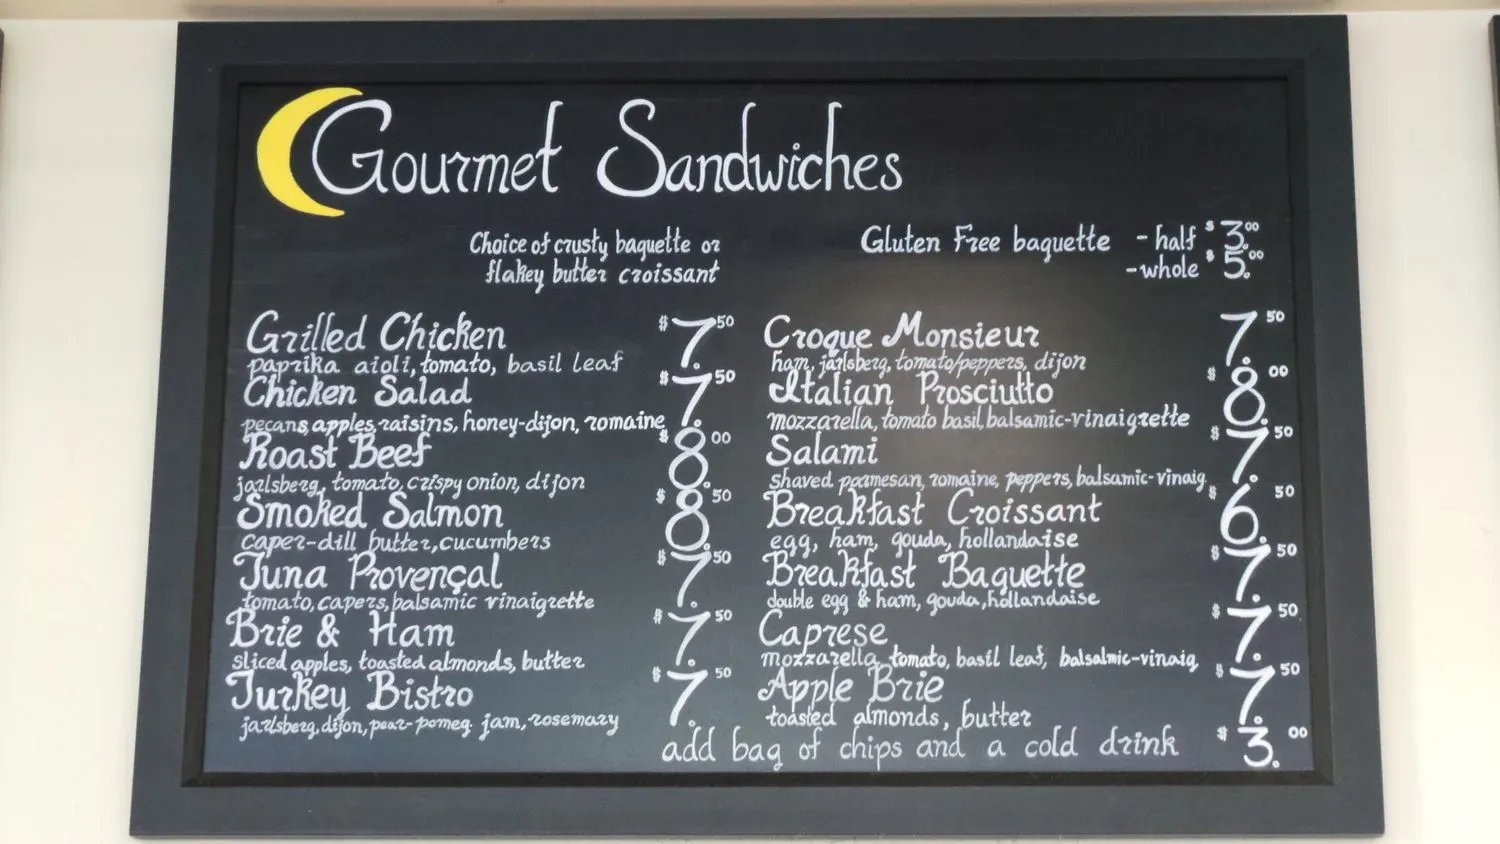 Gourmet Sandwiches
Choice of crusty baguette or
flakey butter croissant
Gluten Free baguette - half $3.00
- whole $5.00
Grilled Chicken $7.50
paprika aioli, tomato, basil leaf
Chicken Salad $7.50
pecans, apples, raisins, honey-dijon, romaine
Roast Beef $8.00
jarlsberg, tomato, crispy onion, dijon
Smoked Salmon $8.50
caper-dill butter, cucumbers
Tuna Provençal $7.50
tomato, capers, balsamic vinaigrette
Brie & Ham $7.50
sliced apples, toasted almonds, butter
Turkey Bistro $7.50
jarlsberg, dijon, pear-pomeg. jam, rosemary
Croque Monsieur 7.50
ham, jarlsberg, tomato/peppers, dijon
Italian Prosciutto $8.00
mozzarella, tomato basil, balsamic-vinaigrette
Salami $7.50
shaved parmesan, romaine, peppers, balsamic-vinaig.
Breakfast Croissant $6.50
egg, ham, gouda, hollandaise
Breakfast Baguette $7.50
double egg & ham, gouda, hollandaise
Caprese $7.50
mozzarella, tomato, basil leaf, balsalmic-vinaig.
Apple Brie $7.50
toasted almonds, butter
add bag of chips and a cold drink $3.00